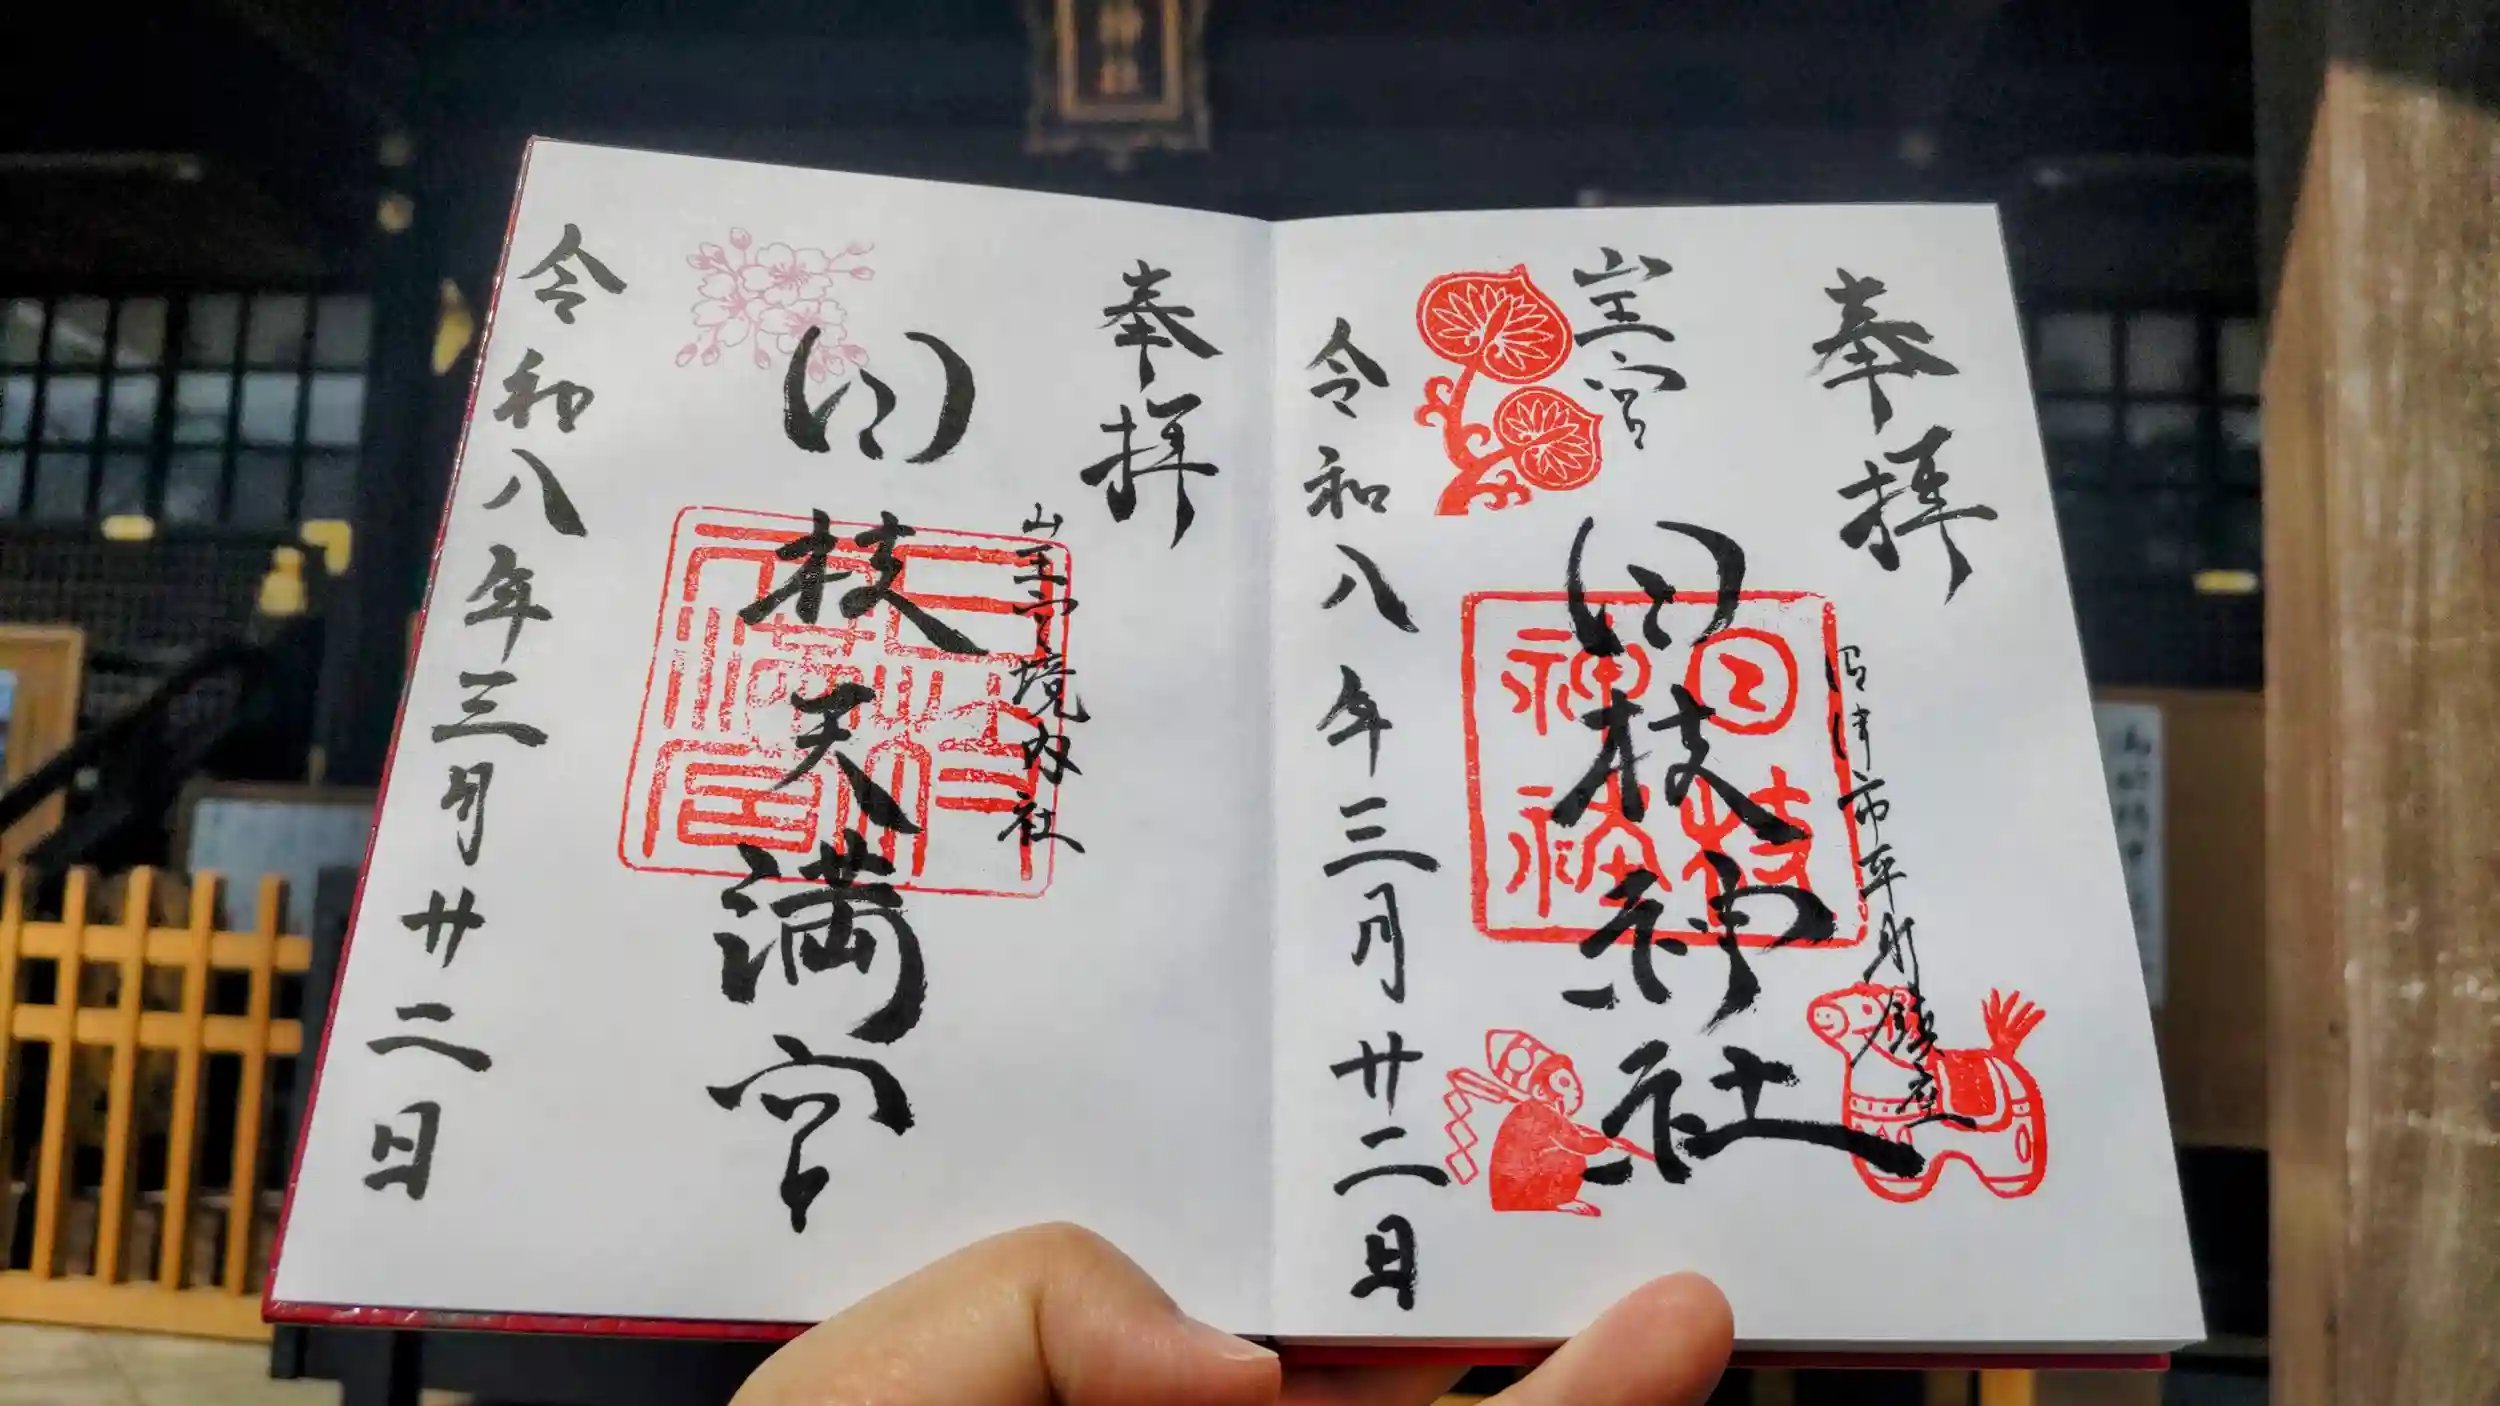 奉拝
山王宮
沼津市平町鎮座
日枝神社
日枝神社
令和八年三月廿二日
奉拝
山王宮境内社
日枝天満宮
令和八年三月廿二日